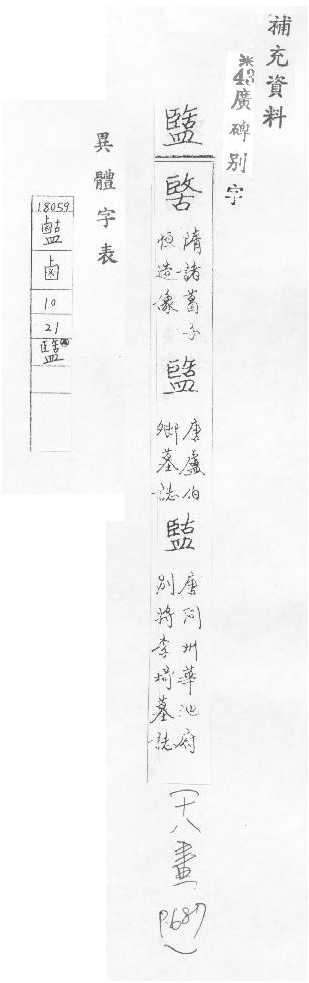 補充資料
※43廣碑別字
盬
隋諸葛子
恒造像
唐盧伯
卿墓誌
唐同州華池府
別將李琦墓誌
(十八畫 P.687)
異體字表
18059
鹵
10
21